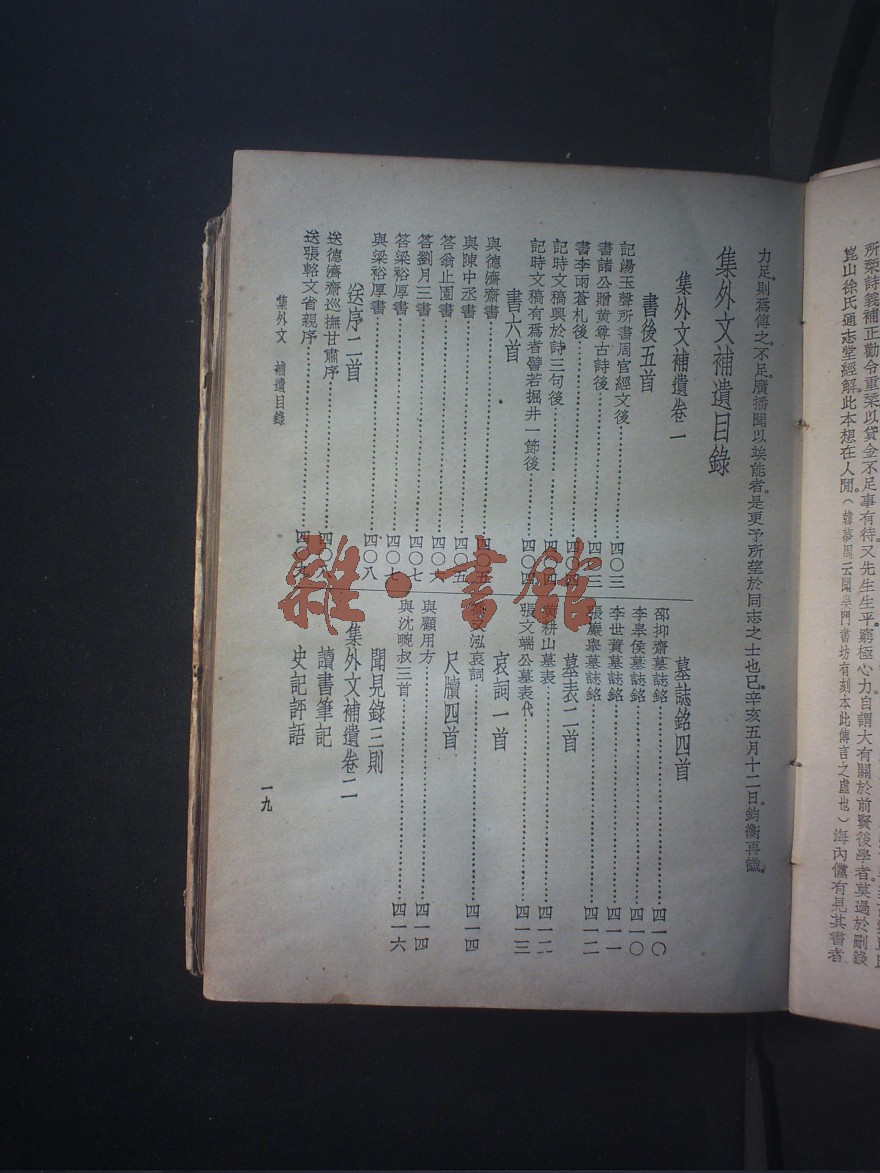 所栞詩義補正勸令重栞以貸金不足事有待。又先生生平。窮極心力自謂大有關於前賢後學者。莫過於刪錄
崑山徐氏通志堂經解。此本想在人閒。（韓夢周云聞吳門書坊有刻本此傳言之虛也）海內儻有見其書者
力足則爲傳之。不足。廣播聞以竢能者。是更予所望於同志之士也已。辛亥五月十二日。鈞衡再識。
集外文補遺目錄
集外文補遺卷一
書後五首
記湯玉聲所書周官經文後……四〇三
書諸公贈黃尊古詩後……四〇三
書李雨蒼札後……四〇四
記時文稿興於詩三句後……四〇四
記時文稿有爲者譬若掘井一節後……四〇四
書六首
與德濟齋書……四〇五
與陳中丞書……四〇五
答翁止園書……四〇六
答劉月三書……四〇七
答梁裕厚書……四〇七
與梁裕厚書……四〇八
送序二首
送德濟齋巡撫甘肅序……四〇八
送張輅文省親序……四〇九
墓誌銘四首
邵抑齋墓誌銘……四一〇
李皋侯墓誌銘……四一〇
李世蕡墓誌銘……四一一
張巖舉墓誌銘……四一二
墓表二首
黃耕山墓表……四一二
張文端公墓表代……四一三
哀詞一首
文泓哀詞……四一四
尺牘四首
與顧用方……四一四
與沈畹叔三首……四一六
聞見錄三則
集外文補遺卷二
讀書筆記
史記評語
集外文　補遺目錄
一九
雜·書館